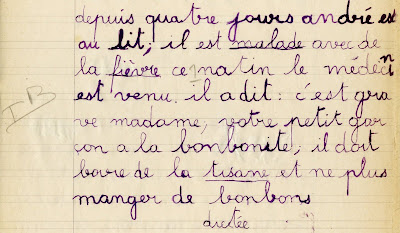 depuis quatre jours andré est
au lit; il est malade avec de
la fièvre ce matin le médecin
est venu. il a dit: c'est gra
ve madame, votre petit gar
çon a la bonbonite, il doit
boire de la tisane et ne plus
manger de bonbons
dictée
TB